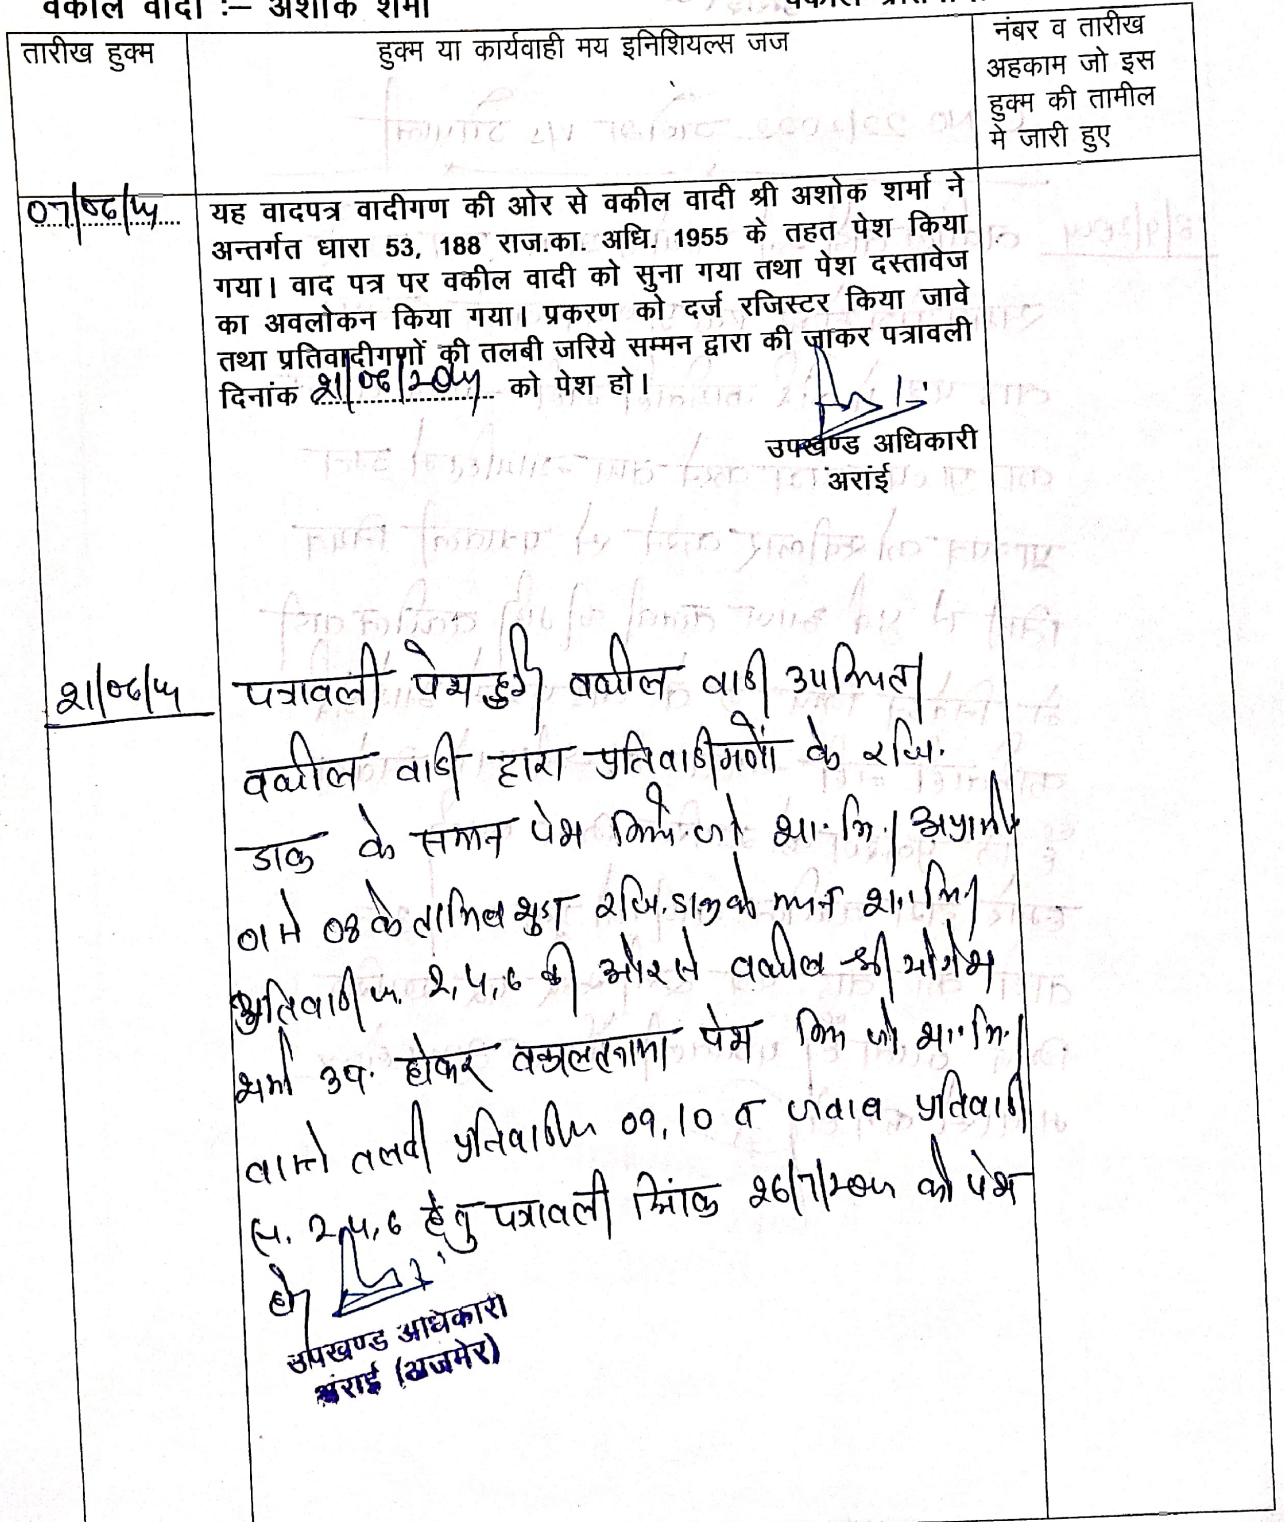 वकील वादी :– अशोक शर्मा
तारीख हुक्म
हुक्म या कार्यवाही मय इनिशियल्स जज
नंबर व तारीख
अहकाम जो इस
हुक्म की तामील
मे जारी हुए
यह वादपत्र वादीगण की ओर से वकील वादी श्री अशोक शर्मा ने
अन्तर्गत धारा 53, 188 राज.का. अधि. 1955 के तहत पेश किया
गया। वाद पत्र पर वकील वादी को सुना गया तथा पेश दस्तावेज
का अवलोकन किया गया। प्रकरण को दर्ज रजिस्टर किया जावे
तथा प्रतिवादीगणों की तलबी जरिये सम्मन द्वारा की जाकर पत्रावली
दिनांक को पेश हो।
उपखण्ड अधिकारी
अरांई
पत्रावली पेश हुई वकील वादी उपस्थित।
वकील वादी द्वारा प्रतिवादीगणों के रजि.
डाक के सम्मन पेश किये जो शा.मि.।
08 के तामिल शुदा रजि. डाक के शा.मि.।
प्रतिवादी 2, 4, 6 की ओर से वकील श्री योगेश
शर्मा उप. होकर वकालतनामा पेश किया जो शा.मि.।
वास्ते तलबी 09, 10 व जवाब प्रतिवादी
2, 4, 6 हेतु पत्रावली दिनांक को पेश
हो।
उपखण्ड अधिकारी
अंराई (अजमेर)